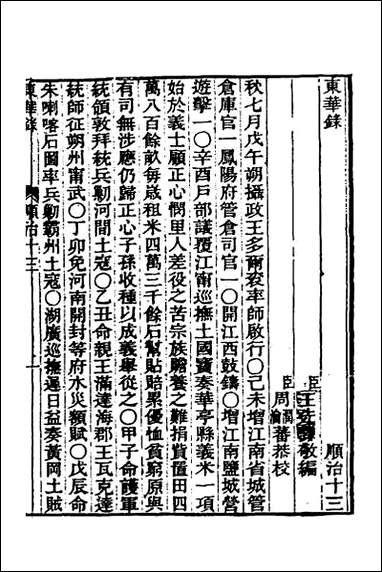 東華錄 順治十三
臣王先謙敬編
臣周潤瀹蕃恭校
秋七月戊午朔攝政王多爾袞率師啟行○己未增江南省城管
倉庫官一鳳陽府管倉司官一○開江西鼓鑄○增江南鹽城營
遊擊一○辛酉戶部議覆江甯巡撫土國寶奏華亭縣義米一項
始於義士顧正心憫里人差役之苦宗族贍養之難捐貲置田四
萬八百餘畝每歲租米四萬三千餘石幫貼賠累優恤貧窮原與
有司無涉應仍歸正心子孫收種以成義舉從之○甲子命護軍
統領敦拜統兵勦河間土寇○乙丑命親王滿達海郡王瓦克達
統師征朔州甯武○丁卯免河南開封等府水災額賦○戊辰命
朱喇喀石圖率兵勦霸州土寇○湖廣巡撫遲日益奏黃岡土賊
東華錄 順治十三 一